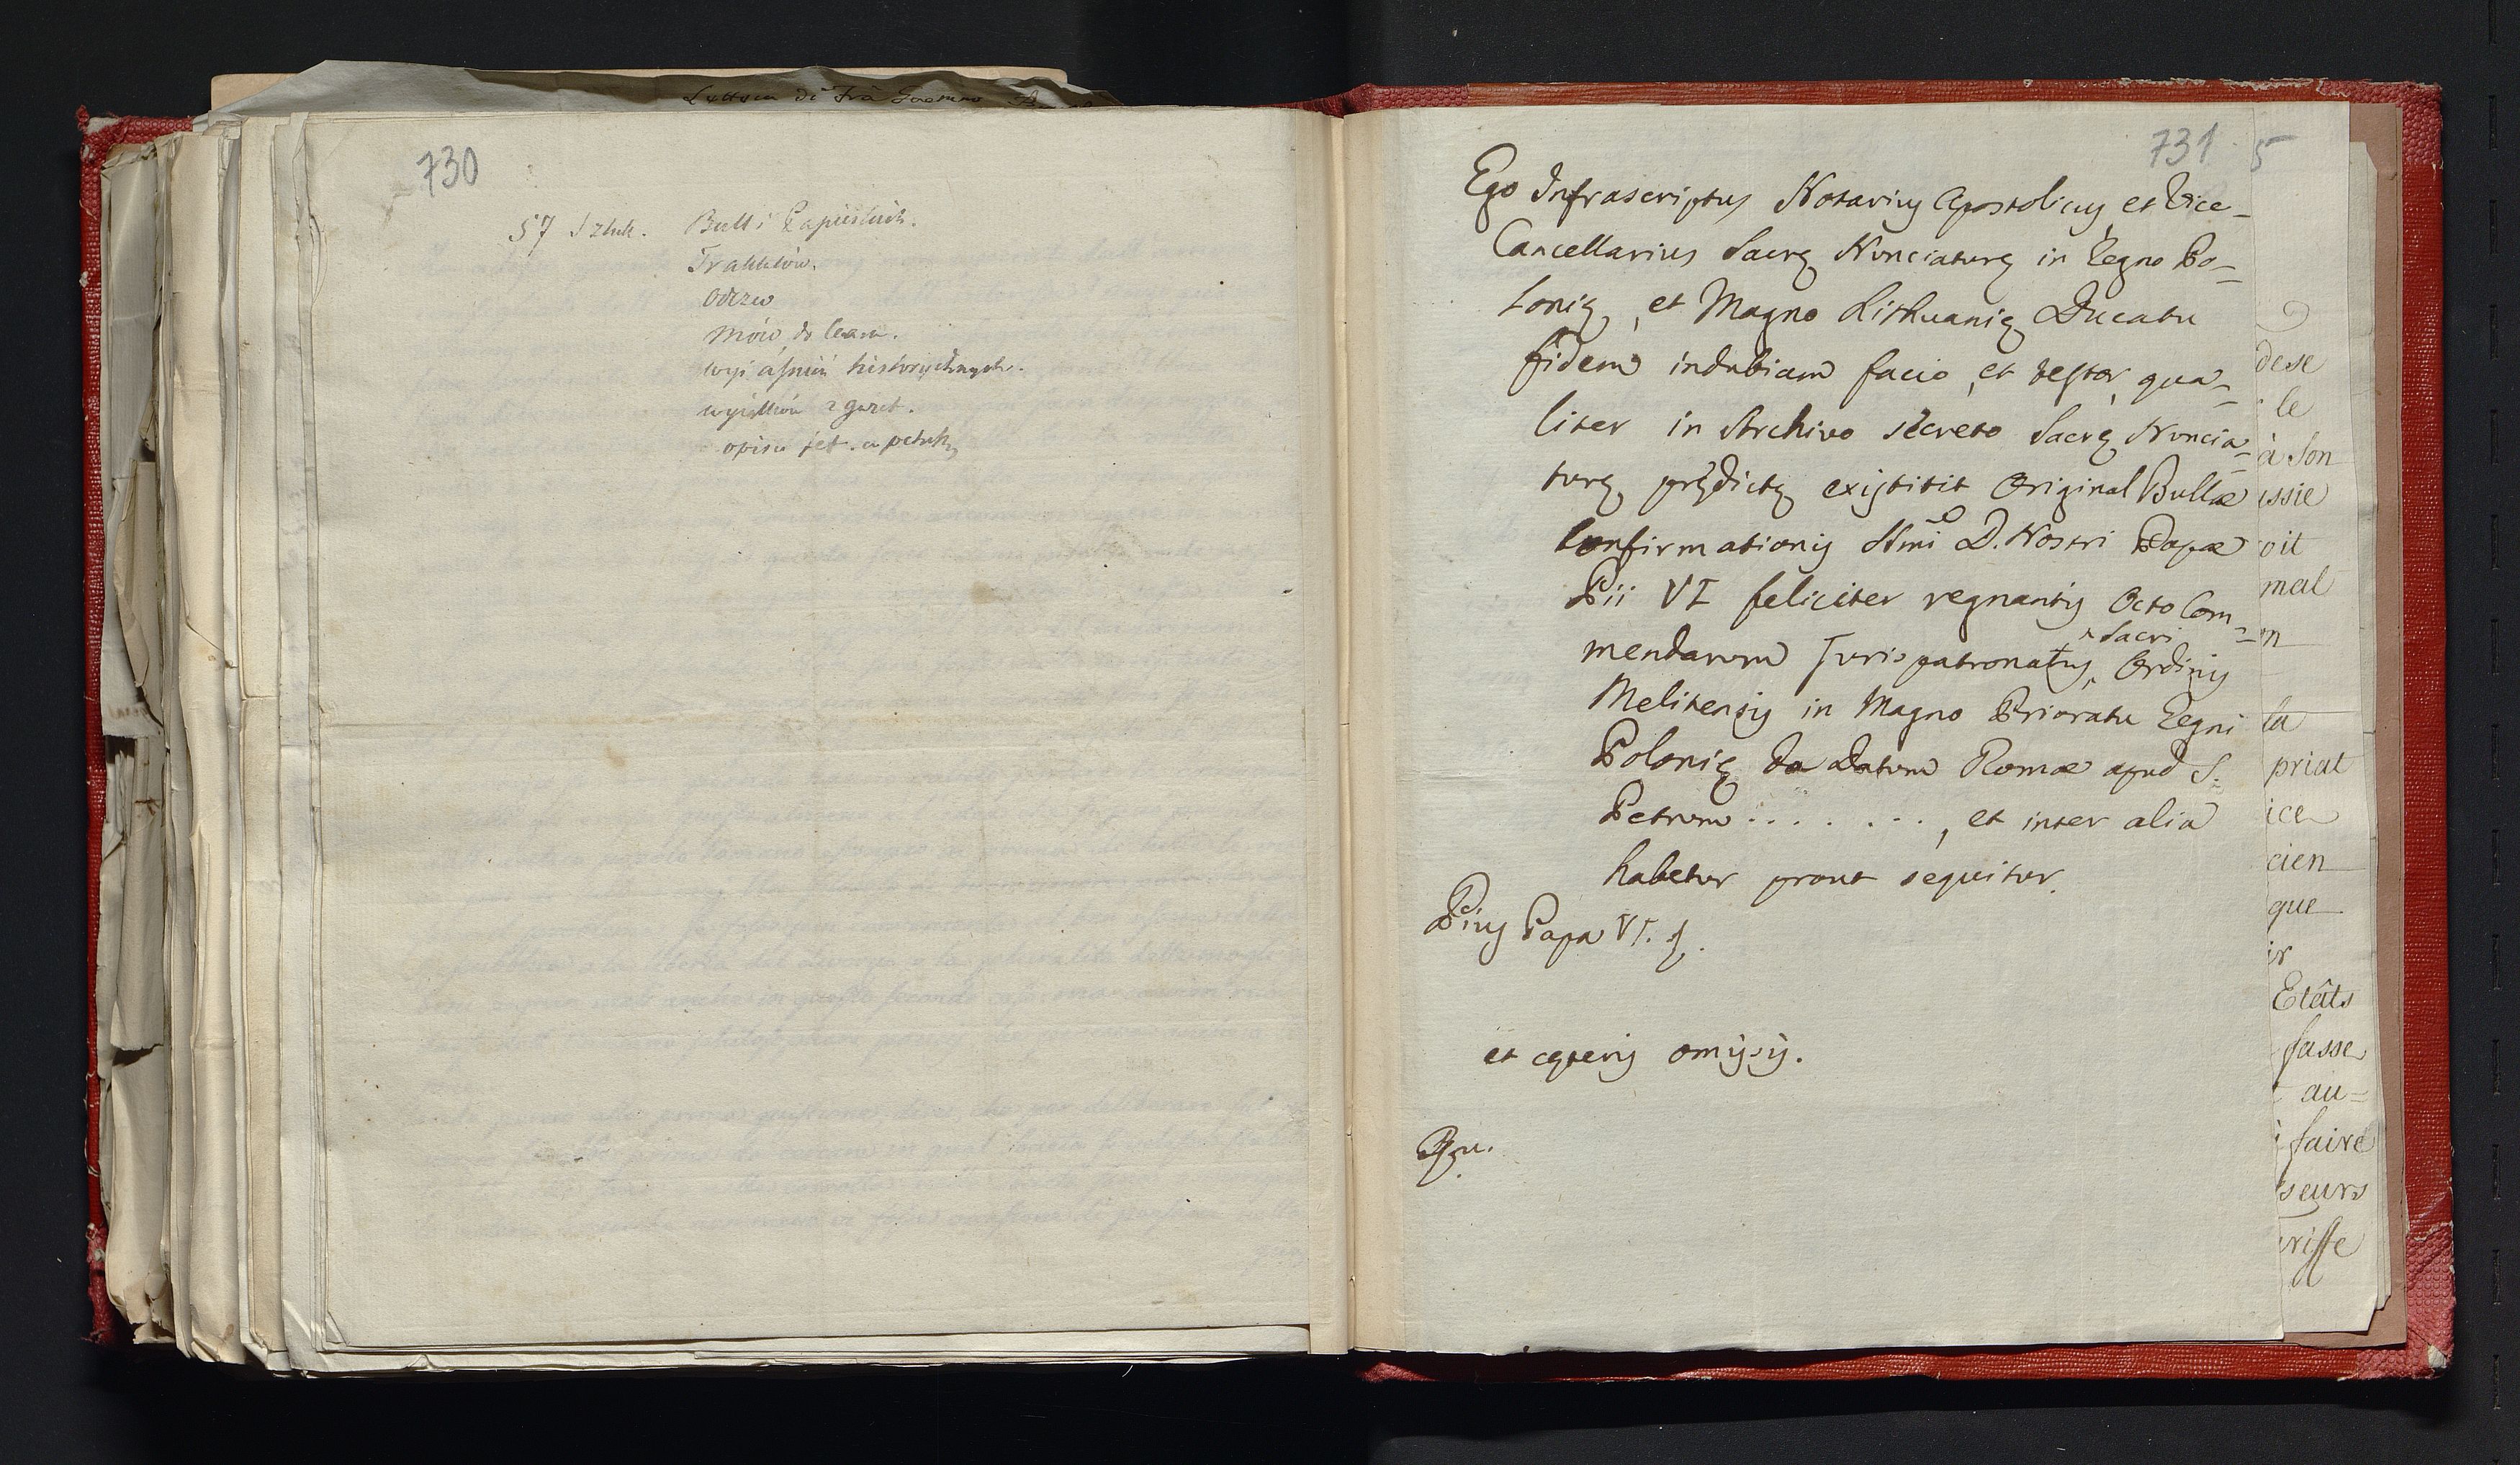 730
57 Sztuk. Bull i Papieskich.
Traktatów.
Odezw
Mów do
wyjaśnień historycznych.
wyjątków z gazet.
opisu
731
5
Ego Infrascriptus Notarius Apostolicus et Vice-
Cancellarius Sacrę Nunciaturę in Regno Po-
lonię, et Magno Lithuanię Ducatu
fidem indubiam facio, et testor, qua-
liter in Archivo secreto Sacrę Nuncia-
turę prędictę existitit Original Bullæ
Confirmationis Ssmi D. Nostri Papæ
Pii VI feliciter regnantis Octo Com-
Sacri
mendarum Jurispatronatus, Ordinis
Melitensis in Magno Prioratu Regni
Polonię da Datum Romæ apud S.
Petrum . . . . . . . , et inter alia
habetur prout sequitur.
Pius Papa VI.
et cęteris omissis.
dese
le
à son
ussie
oit
mal
n
la
priat
ice
cien
que
ir
Etâts
fasse
au=
faire
seurs
risse